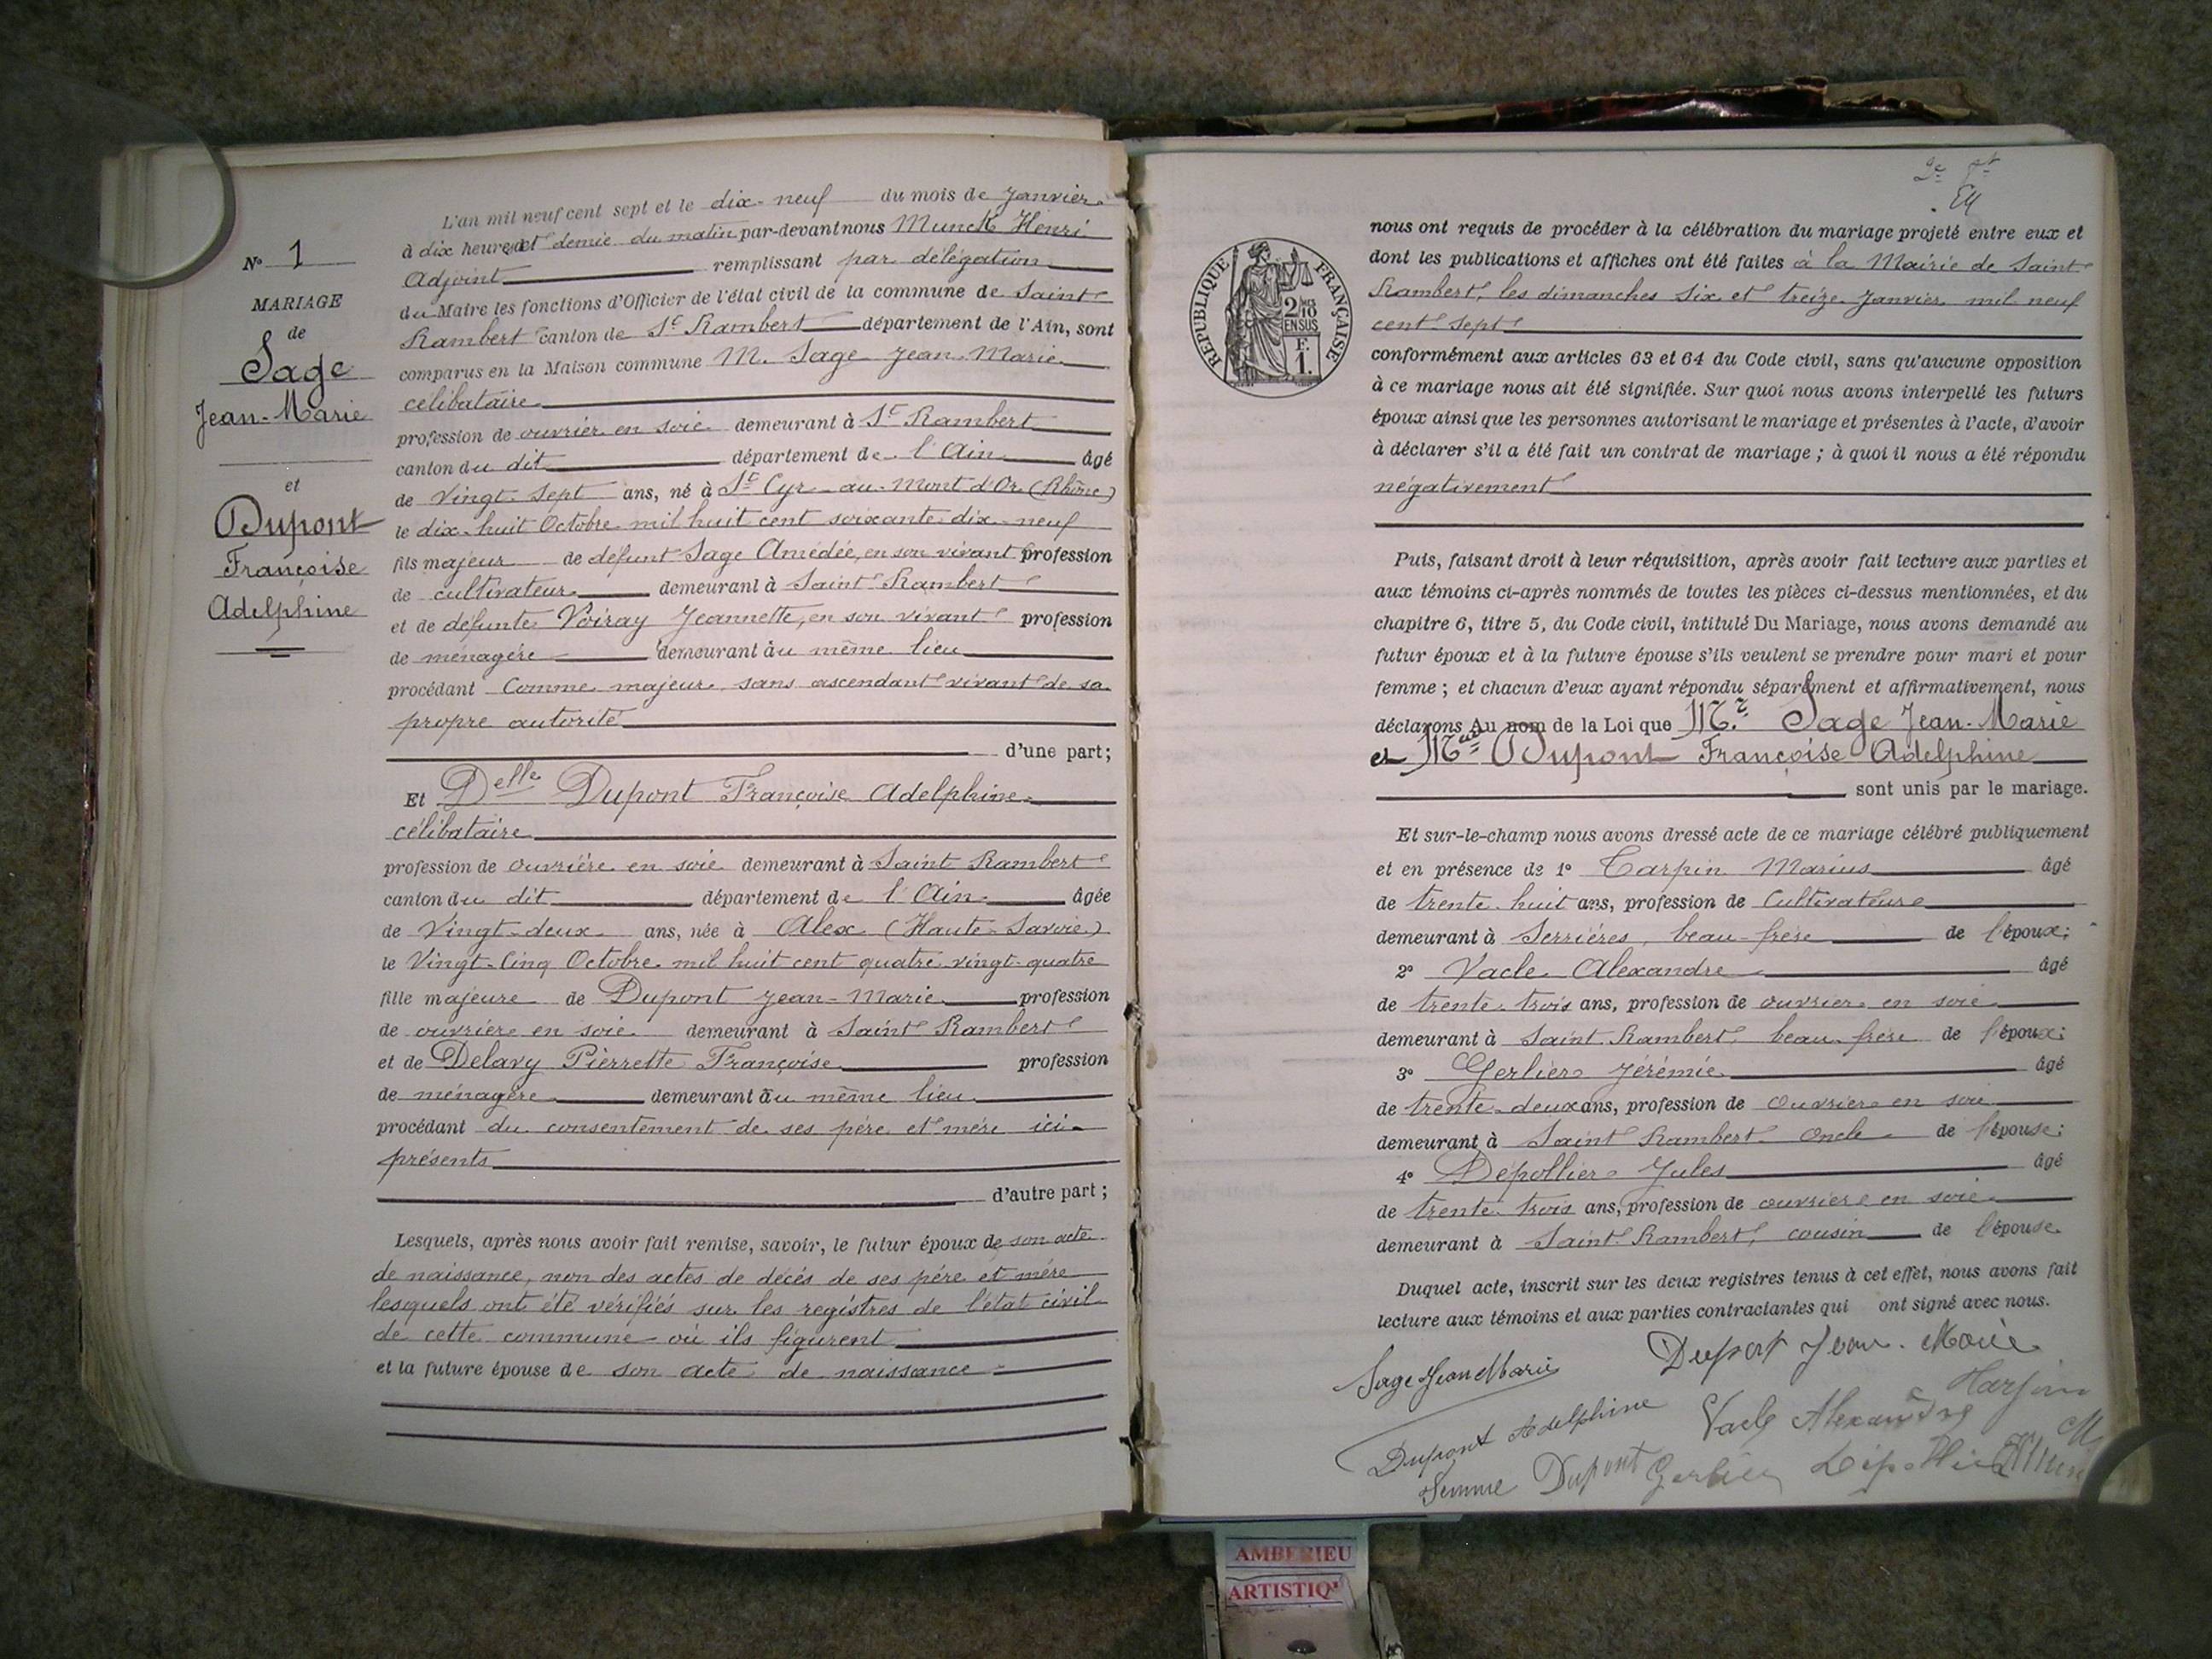 N° 1
MARIAGE
de
Sage
Jean-Marie
et
Dupont
Françoise
Adelphine
L'an mil neuf cent sept et le dix-neuf du mois de Janvier
à dix heures et demie du matin par-devant nous Munck Henri
Adjoint remplissant par délégation
du Maire les fonctions d'Officier de l'état civil de la commune de Saint
Rambert canton de St Rambert département de l'Ain, sont
comparus en la Maison commune M. Sage Jean-Marie
célibataire
profession de ouvrier en soie demeurant à St Rambert
canton du dit département de l'Ain âgé
de vingt-sept ans, né à St Cyr-au-Mont d'Or (Rhône)
le dix-huit Octobre mil huit cent soixante-dix-neuf
fils majeur de défunt Sage Amédée, en son vivant profession
de cultivateur demeurant à Saint Rambert
et de défunte Voiray Jeannette, en son vivant profession
de ménagère demeurant au même lieu
procédant comme majeur, sans ascendant vivant de sa
propre autorité
d'une part;
Et Delle Dupont Françoise Adelphine
célibataire
profession de ouvrière en soie demeurant à Saint Rambert
canton du dit département de l'Ain âgée
de Vingt-deux ans, née à Alex (Haute-Savoie)
le Vingt-Cinq Octobre mil huit cent quatre-vingt-quatre
fille majeure de Dupont Jean-Marie profession
de ouvrier en soie demeurant à Saint Rambert
et de Delavy Pierrette Françoise profession
de ménagère demeurant au même lieu
procédant du consentement de ses père et mère ici-
présents
d'autre part;
Lesquels, après nous avoir fait remise, savoir, le futur époux de son acte
de naissance, non des actes de décès de ses père et mère
lesquels ont été vérifiés sur les registres de l'état civil
de cette commune où ils figurent
et la future épouse de son acte de naissance
2e
RÉPUBLIQUE FRANÇAISE
2/10
EN SUS
F.
1.
nous ont requis de procéder à la célébration du mariage projeté entre eux et
dont les publications et affiches ont été faites à la Mairie de Saint
Rambert, les dimanches six et treize Janvier mil neuf
cent sept
conformément aux articles 63 et 64 du Code civil, sans qu'aucune opposition
à ce mariage nous ait été signifiée. Sur quoi nous avons interpellé les futurs
époux ainsi que les personnes autorisant le mariage et présentes à l'acte, d'avoir
à déclarer s'il a été fait un contrat de mariage; à quoi il nous a été répondu
négativement
Puis, faisant droit à leur réquisition, après avoir fait lecture aux parties et
aux témoins ci-après nommés de toutes les pièces ci-dessus mentionnées, et du
chapitre 6, titre 5, du Code civil, intitulé Du Mariage, nous avons demandé au
futur époux et à la future épouse s'ils veulent se prendre pour mari et pour
femme; et chacun d'eux ayant répondu séparément et affirmativement, nous
déclarons Au nom de la Loi que Mr Sage Jean-Marie
et Mlle Dupont Françoise Adelphine
sont unis par le mariage.
Et sur-le-champ nous avons dressé acte de ce mariage célébré publiquement
et en présence de 1° Tarpin Marius âgé
de trente-huit ans, profession de Cultivateur
demeurant à Serrières, beau-frère de l'époux;
2° Vacle Alexandre âgé
de trente-trois ans, profession de ouvrier en soie
demeurant à Saint Rambert, beau-frère de l'époux;
3° Gerlier Jérémie âgé
de trente-deux ans, profession de ouvrier en soie
demeurant à Saint Rambert Oncle de l'épouse;
4° Dépollier Jules âgé
de trente-trois ans, profession de ouvrier en soie
demeurant à Saint Rambert, cousin de l'épouse
Duquel acte, inscrit sur les deux registres tenus à cet effet, nous avons fait
lecture aux témoins et aux parties contractantes qui ont signé avec nous.
Sage Jean Marie
Dupont Jean-Marie
Dupont Adelphine
Vacle Alexandre
Tarpin M
Femme Dupont
Gerlier
Dépollier
AMBERIEU
ARTISTIQ'